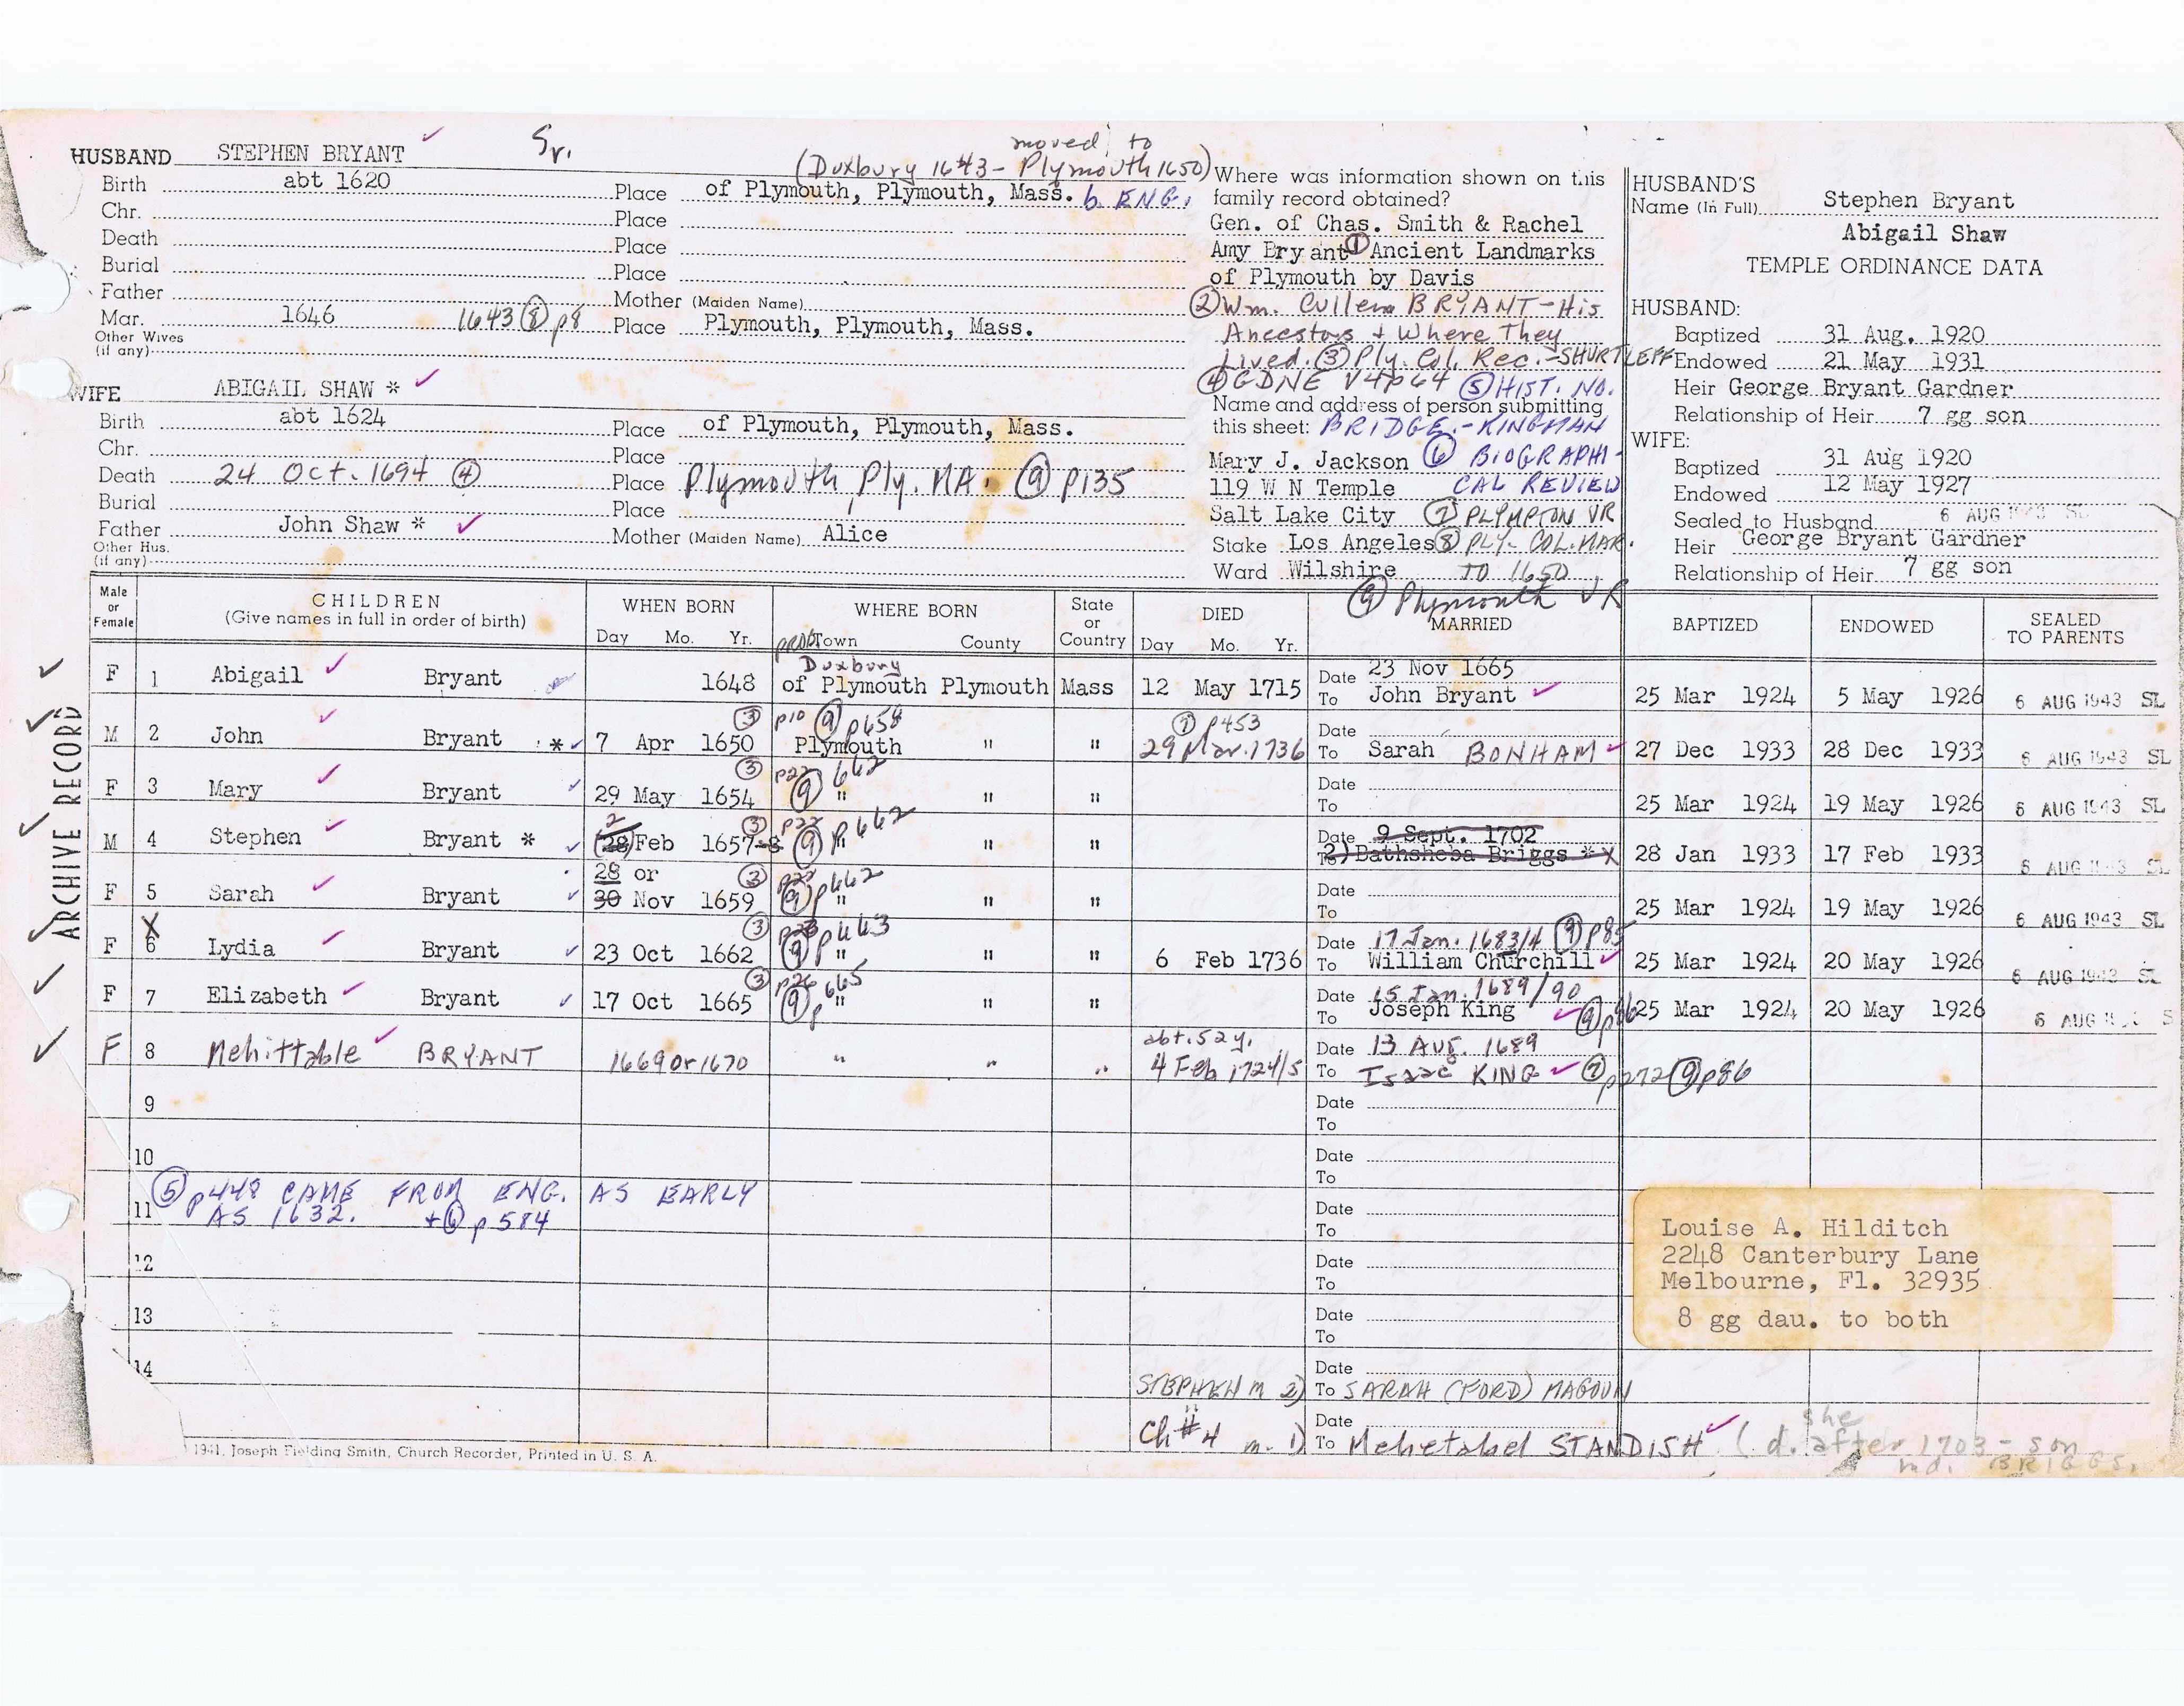 HUSBAND STEPHEN BRYANT Sr.
moved to
(Duxbury 1643 - Plymouth 1650)
Birth abt 1620 Place of Plymouth, Plymouth, Mass. b. ENG.
Chr. Place
Death Place
Burial Place
Father Mother (Maiden Name)
Mar. 1646 1643 (8) p8 Place Plymouth, Plymouth, Mass.
Other Wives
(if any)
WIFE ABIGAIL SHAW *
Birth abt 1624 Place of Plymouth, Plymouth, Mass.
Chr. Place
Death 24 Oct. 1694 (4) Place Plymouth, Ply. MA. (9) p135
Burial Place
Father John Shaw * Mother (Maiden Name) Alice
Other Hus.
(if any)
Where was information shown on this
family record obtained?
Gen. of Chas. Smith & Rachel
Amy Bryant (1) Ancient Landmarks
of Plymouth by Davis
(2) Wm. Cullen BRYANT - His
Ancestors + Where They
Lived. (3) Ply. Col. Rec. - SHURTLEFF
(4) GDNE V4p64 (5) HIST. NO.
Name and address of person submitting
this sheet: BRIDGE. - KINGMAN
Mary J. Jackson (6) BIOGRAPHI-
119 W N Temple CAL REVIEW
Salt Lake City (7) PLYMPTON VR
Stake Los Angeles (8) PLY- COL. MAR.
Ward Wilshire TO 1650
(9) Plymouth VR
HUSBAND'S
Name (In Full) Stephen Bryant
Abigail Shaw
TEMPLE ORDINANCE DATA
HUSBAND:
Baptized 31 Aug. 1920
Endowed 21 May 1931
Heir George Bryant Gardner
Relationship of Heir 7 gg son
WIFE:
Baptized 31 Aug 1920
Endowed 12 May 1927
Sealed to Husband 6 AUG 1943 SL
Heir George Bryant Gardner
Relationship of Heir 7 gg son
Male or Female
CHILDREN
(Give names in full in order of birth)
WHEN BORN
Day Mo. Yr.
WHERE BORN
Town County
State or Country
DIED
Day Mo. Yr.
MARRIED
BAPTIZED
ENDOWED
SEALED TO PARENTS
ARCHIVE RECORD
prob Duxbury Date 23 Nov 1665
F 1 Abigail Bryant 1648 of Plymouth Plymouth Mass 12 May 1715 To John Bryant 25 Mar 1924 5 May 1926 6 AUG 1943 SL
(3) p10 (9) p658 (7) p453 Date
M 2 John Bryant * 7 Apr 1650 Plymouth " " 29 Mar. 1736 To Sarah BONHAM 27 Dec 1933 28 Dec 1933 6 AUG 1943 SL
(3) p22 (9) 662 Date
F 3 Mary Bryant 29 May 1654 " " " To 25 Mar 1924 19 May 1926 6 AUG 1943 SL
2 (3) p22 (9) p662 Date 9 Sept. 1702
M 4 Stephen Bryant * (28) Feb 1657-8 " " " To 2) Bathsheba Briggs * X 28 Jan 1933 17 Feb 1933 6 AUG 1943 SL
28 or (3) p22 (9) p662 Date
F 5 Sarah Bryant 30 Nov 1659 " " " To 25 Mar 1924 19 May 1926 6 AUG 1943 SL
X (3) p23 (9) p663 Date 17 Jan. 1683/4 (9) p85
F 6 Lydia Bryant 23 Oct 1662 " " " 6 Feb 1736 To William Churchill 25 Mar 1924 20 May 1926 6 AUG 1943 SL
(3) p26 (9) p665 Date 15 Jan. 1689/90
F 7 Elizabeth Bryant 17 Oct 1665 " " " To Joseph King (9) p86 25 Mar 1924 20 May 1926 6 AUG
abt. 52 y. Date 13 Aug. 1689
F 8 Mehittable BRYANT 1669 or 1670 " " " 4 Feb 1724/5 To Isaac KING (7) p272 (9) p86
9 Date
To
10 Date
To
(5) p448 CAME FROM ENG. AS EARLY
11 AS 1632. + (6) p584 Date
To
12 Date
To
13 Date
To
14 Date
STEPHEN m 2) To SARAH (FORD) MAGOUN
Date
Ch #4 m. 1) To Mehetabel STANDISH (she d. after 1703 - son
md. BRIGGS.
Louise A. Hilditch
2248 Canterbury Lane
Melbourne, Fl. 32935
8 gg dau. to both
1941, Joseph Fielding Smith, Church Recorder, Printed in U. S. A.